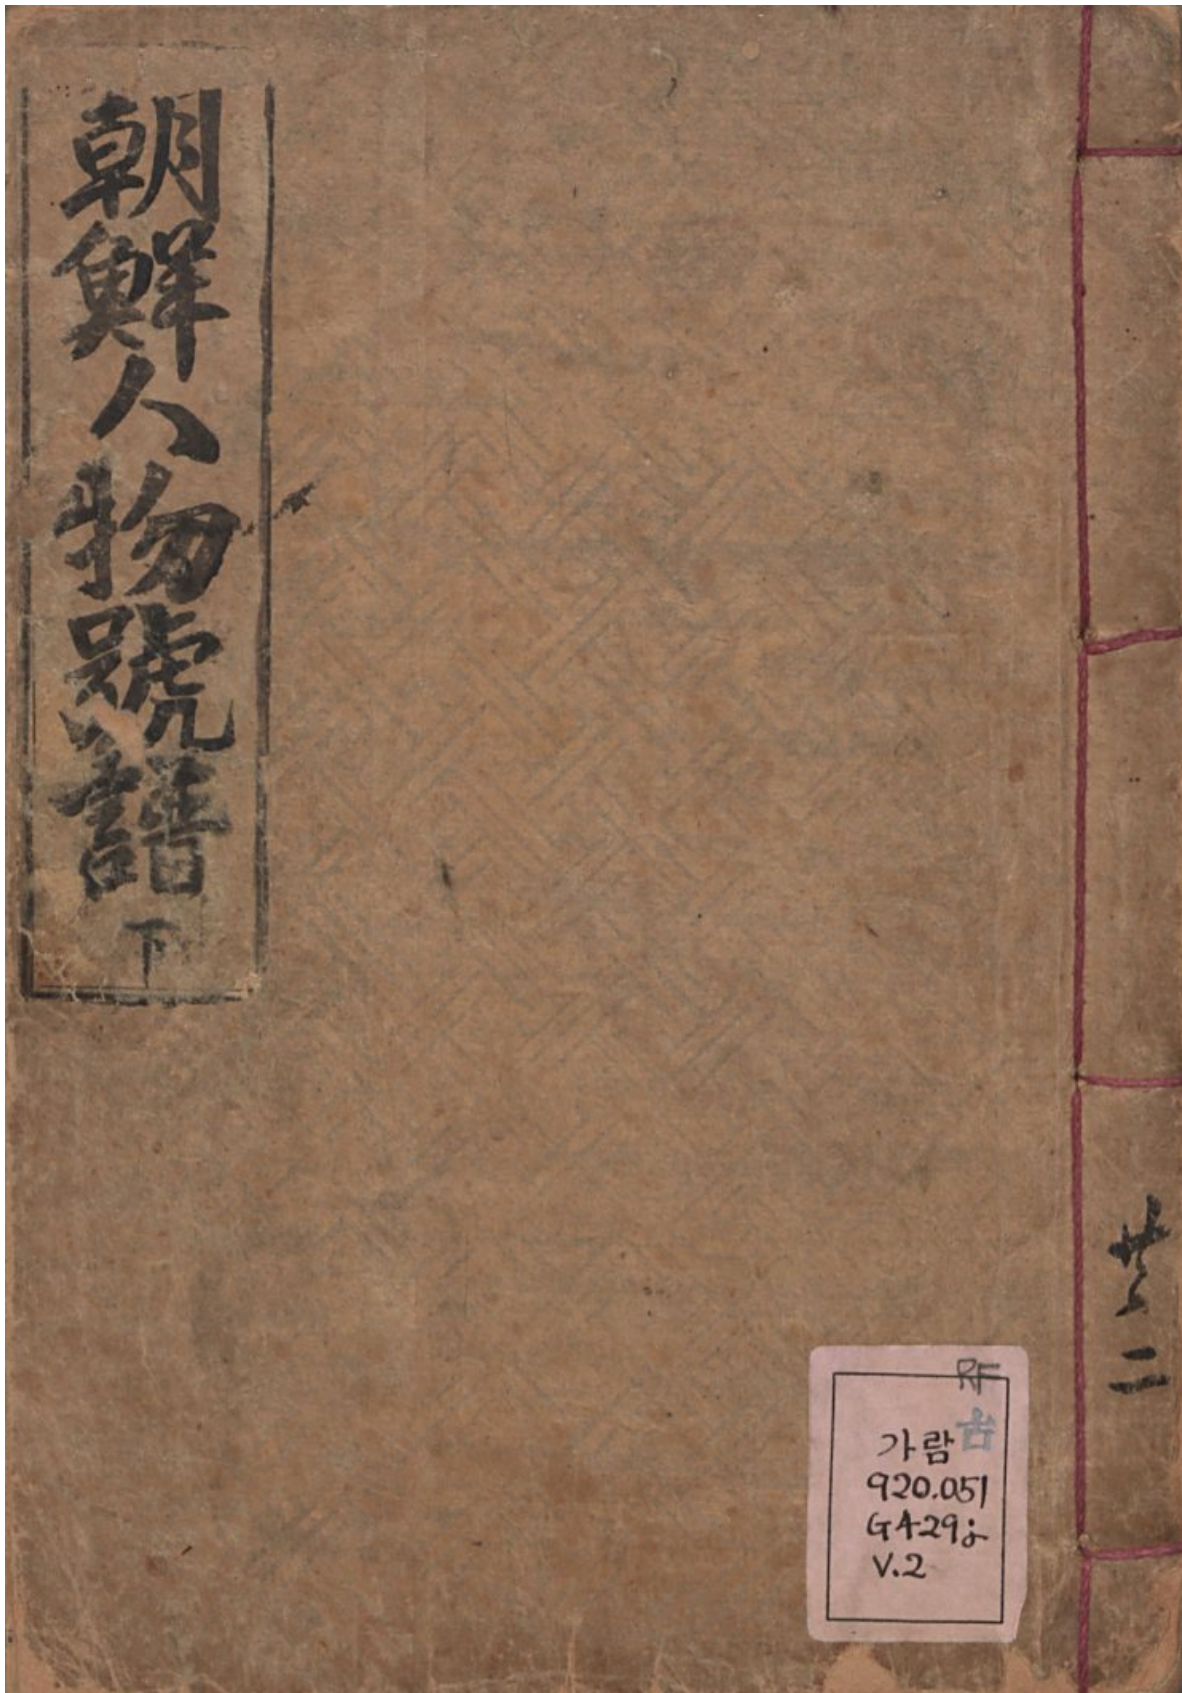 朝鮮人物號譜 下
共二
RF
古
가람
920.051
G429j
V.2